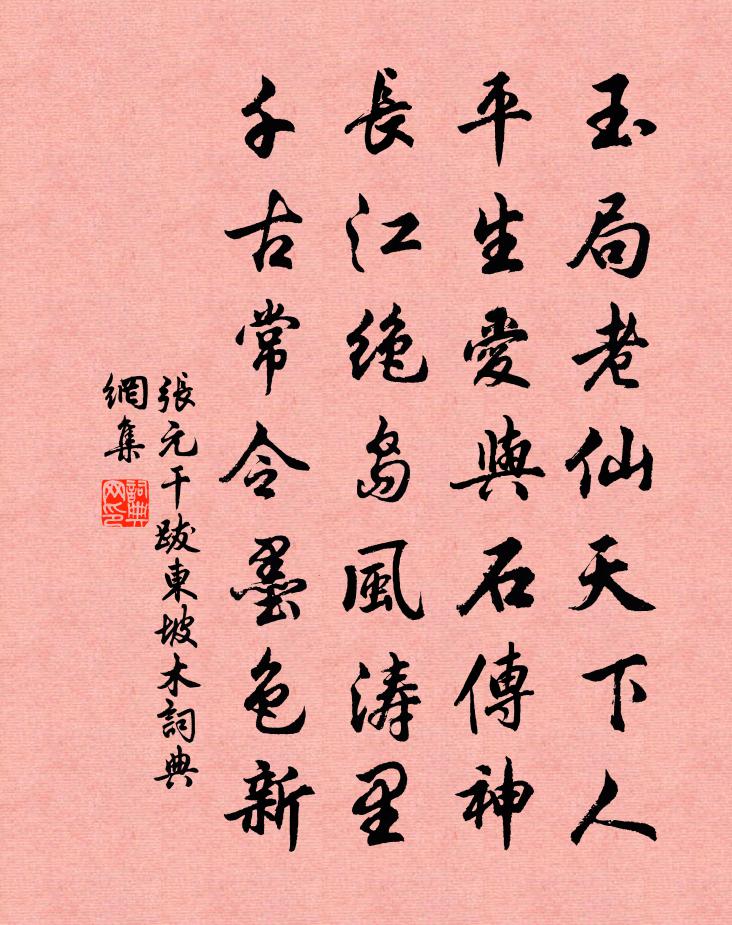 玉局老仙天下人
平生愛與石傳神
長江绝島風涛里
千古常令墨色新
張元干跋東坡木詞典
網集
詞典网印